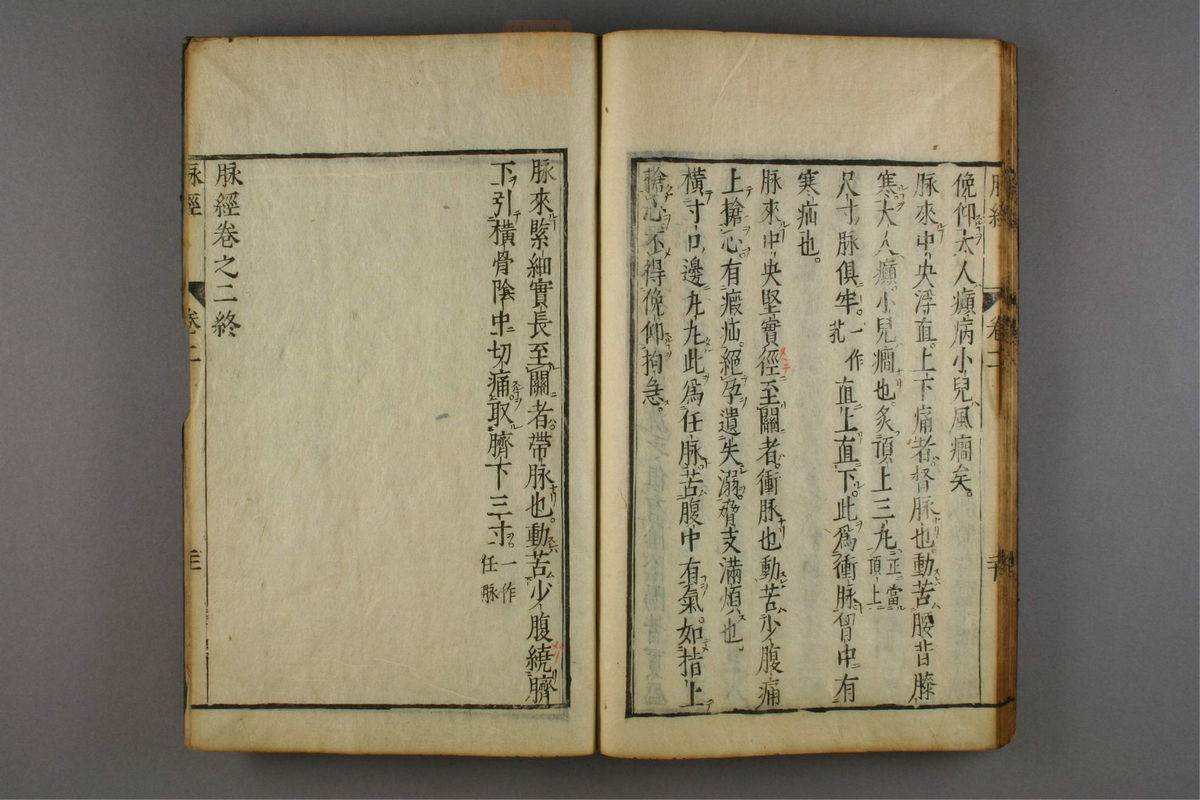 脉經 卷二
俛仰大人癲病小兒風癎矣。
脉來中央浮直上下痛者督脉也動苦腰背膝
寒大人癲小兒癎也炙頂上三丸正當頂上
尺寸脉俱牢。一作芤直上直下。此爲衝脉。胷中有
寒疝也。
脉來中央堅實徑至關者。衝脉也動苦少腹痛
上搶心。有瘕疝。絕孕遺失溺。脅支滿煩也
橫寸口邊丸丸此爲任脉。苦腹中有氣。如指上
搶心。不得俛仰拘急。
脉來緊細實長至關者帶脉也。動苦少腹繞臍
下引橫骨陰中切痛。取臍下三寸一作任脉
脉經卷之二終
脉經 卷二